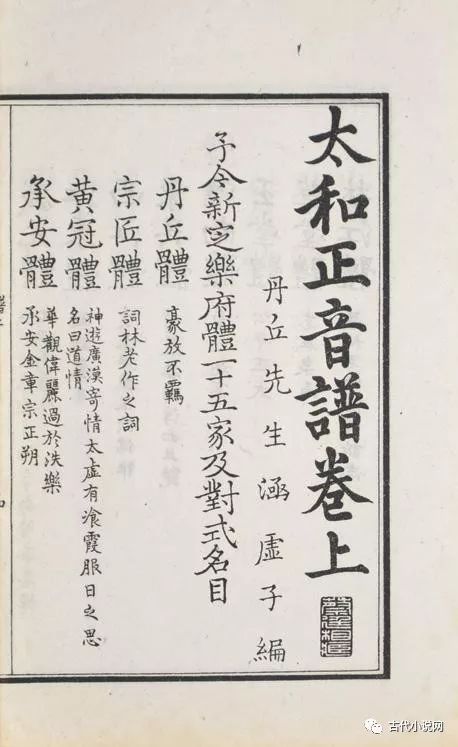 太和正音譜卷上
丹丘先生涵虛子編
予今新定樂府體一十五家及對式名目
丹丘體 豪放不羈
宗匠體 詞林老作之詞
黃冠體 神遊廣漠寄情太虛有飡霞服日之思
名曰道情
承安體 華觀偉麗過於泆樂
承安金章宗正朔
古代小说网